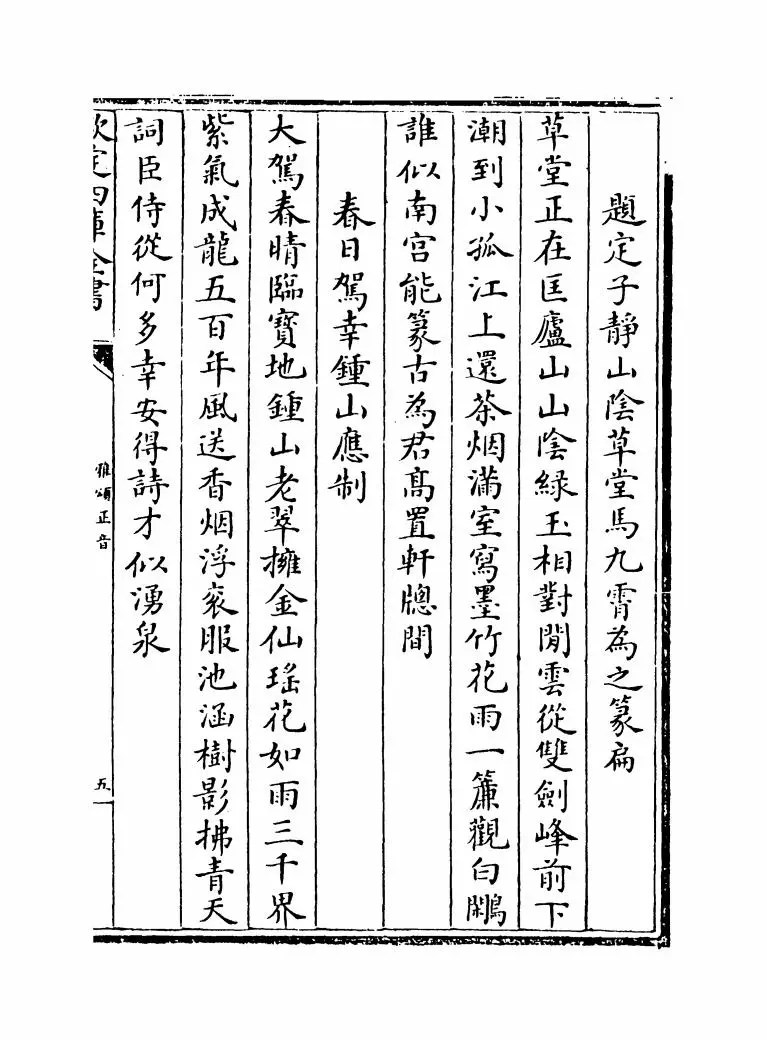 題定子靜山陰草堂馬九霄為之篆扁
草堂正在匡廬山山陰緑玉相對閒雲從雙劍峰前下
潮到小孤江上還茶烟滿室寫墨竹花雨一簾觀白鷴
誰似南宫能篆古為君髙置軒牕間
春日駕幸鍾山應制
大駕春晴臨寳地鍾山老翠擁金仙瑤花如雨三千界
紫氣成龍五百年風送香烟浮衮服池涵樹影拂青天
詞臣侍從何多幸安得詩才似湧泉
欽定四庫全書
雅頌正音
五